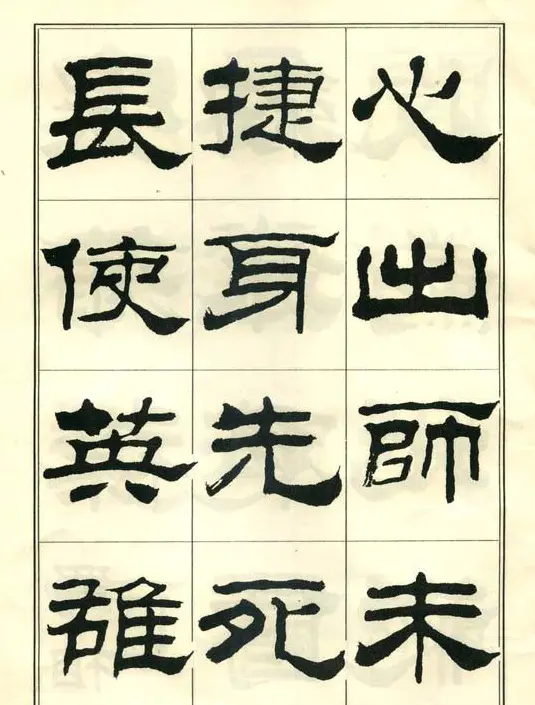 心出師未
捷身先死
長使英雄